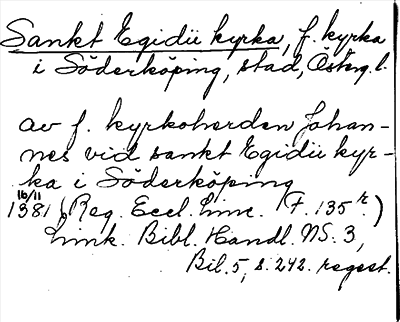 Sankt Egidii kyrka, f. kyrka
i Söderköping, stad, Österg. l.
av f. kyrkoherden Johan-
nes vid sankt Egidii kyr-
ka i Söderköping
16/11
1381 (Reg. Eccl. Linc. F. 135 r.)
Link. Bibl. Handl. NS. 3,
Bil. 5, s. 242. regest.